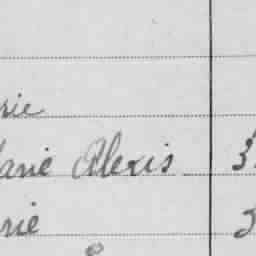 rie
arie Alexis 3
rie